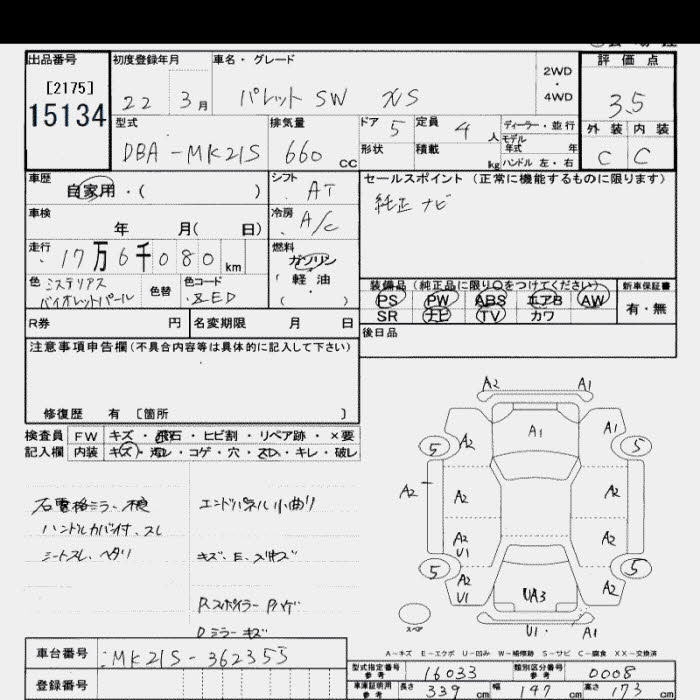 出品番号 初度登録年月 車名・グレード 2WD・4WD 評価点
[2175]
15134
22 3月 パレット SW XS 3.5
型式 排気量 ドア 5 定員 4人 ディーラー・並行 外装 内装
モデル年式 年
DBA-MK21S 660cc 形状 積載 kg ハンドル 左・右 C C
車歴 シフト セールスポイント(正常に機能するものに限ります)
自家用・( ) AT 純正ナビ
車検 冷房
年 月( 日) A/C
走行 燃料
17万6千080km ガソリン
軽油
( )
色 ミステリアスバイオレットパール 色替 色コード ZED
装備品(純正品に限り○をつけてください) 新車保証書
PS PW ABS エアB AW 有・無
SR ナビ TV カワ
R券 円 名変期限 月 日 後日品
注意事項申告欄(不具合内容等は具体的に記入して下さい)
修復歴 有 [箇所 ]
検査員 FW キズ・飛石・ヒビ割・リペア跡・×要
記入欄 内装 キズ・汚れ・コゲ・穴・スレ・キレ・破レ
ハンドルカバー付、スレ
シートスレ、ヘタリ
エンドパネル小曲り
Rスポイラー Pハゲ
Dミラーキズ
A2 A1
A2 A1 A1
5 5
A2 A2 A2
A2 U1 A2
5 5
A2 U1 UA3 A2
スペア U1 A1
A-キズ E-エクボ U-凹み W-補修跡 S-サビ C-腐食 XX-交換済
車台番号 MK21S-362355
登録番号
型式指定番号 参考 16033 類別区分番号 参考 0008
車庫証明用 参考 長さ 339cm 幅 147cm 高さ 173cm